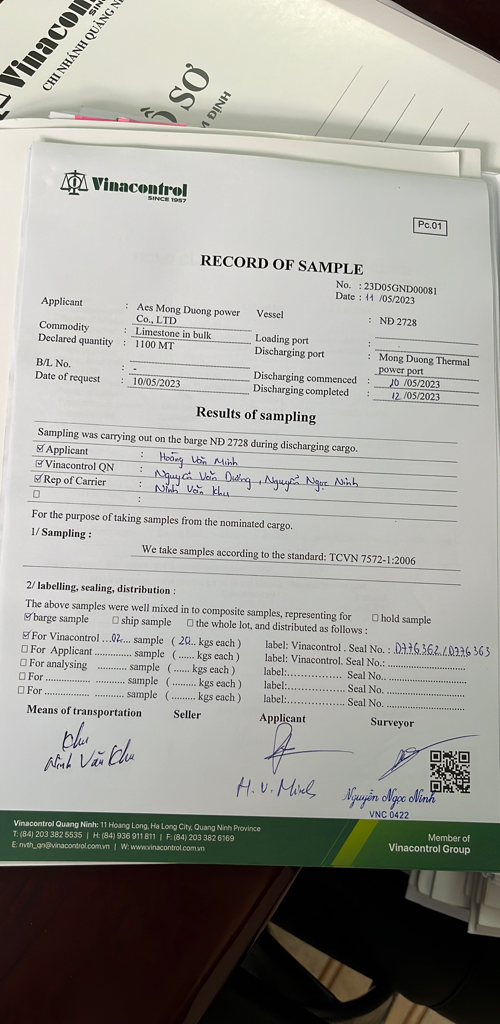 Vinacontrol
CHI NHÁNH QUẢNG N
SƠ
M ĐỊNH
Vinacontrol
SINCE 1957
Pc.01
RECORD OF SAMPLE
No. : 23D05GND00081
Date : 11 /05/2023
Applicant : Aes Mong Duong power Co., LTD Vessel : NĐ 2728
Commodity : Limestone in bulk Loading port :
Declared quantity : 1100 MT Discharging port : Mong Duong Thermal power port
B/L No. : - Discharging commenced : 10 /05/2023
Date of request : 10/05/2023 Discharging completed : 12 /05/2023
Results of sampling
Sampling was carrying out on the barge NĐ 2728 during discharging cargo.
☑ Applicant : Hoàng Văn Minh
☑ Vinacontrol QN : Nguyễn Văn Dương, Nguyễn Ngọc Ninh
☑ Rep of Carrier : Ninh Văn Khu
☐ :
For the purpose of taking samples from the nominated cargo.
1/ Sampling :
We take samples according to the standard: TCVN 7572-1:2006
2/ labelling, sealing, distribution :
The above samples were well mixed in to composite samples, representing for ☐ hold sample
☑ barge sample ☐ ship sample ☐ the whole lot, and distributed as follows :
☑ For Vinacontrol ...02... sample ( 20... kgs each ) label: Vinacontrol . Seal No. : 0776362/0776363
☐ For Applicant ............ sample ( ...... kgs each ) label: Vinacontrol. Seal No.: ........................
☐ For analysing ............ sample ( ...... kgs each ) label:.............. Seal No.. ........................
☐ For ............. ............ sample ( ...... kgs each ) label:.............. Seal No. ........................
☐ For ............. ............ sample ( ........ kgs each ) label:.............. Seal No. ........................
Means of transportation Seller Applicant Surveyor
Khu
Ninh Văn Khu
H.V. Minh
Nguyễn Ngọc Ninh
VNC 0422
Vinacontrol Quang Ninh: 11 Hoang Long, Ha Long City, Quang Ninh Province
T: (84) 203 382 5535 | H: (84) 936 911 811 | F: (84) 203 382 6169
E: nvth_qn@vinacontrol.com.vn | W: www.vinacontrol.com.vn
Member of
Vinacontrol Group